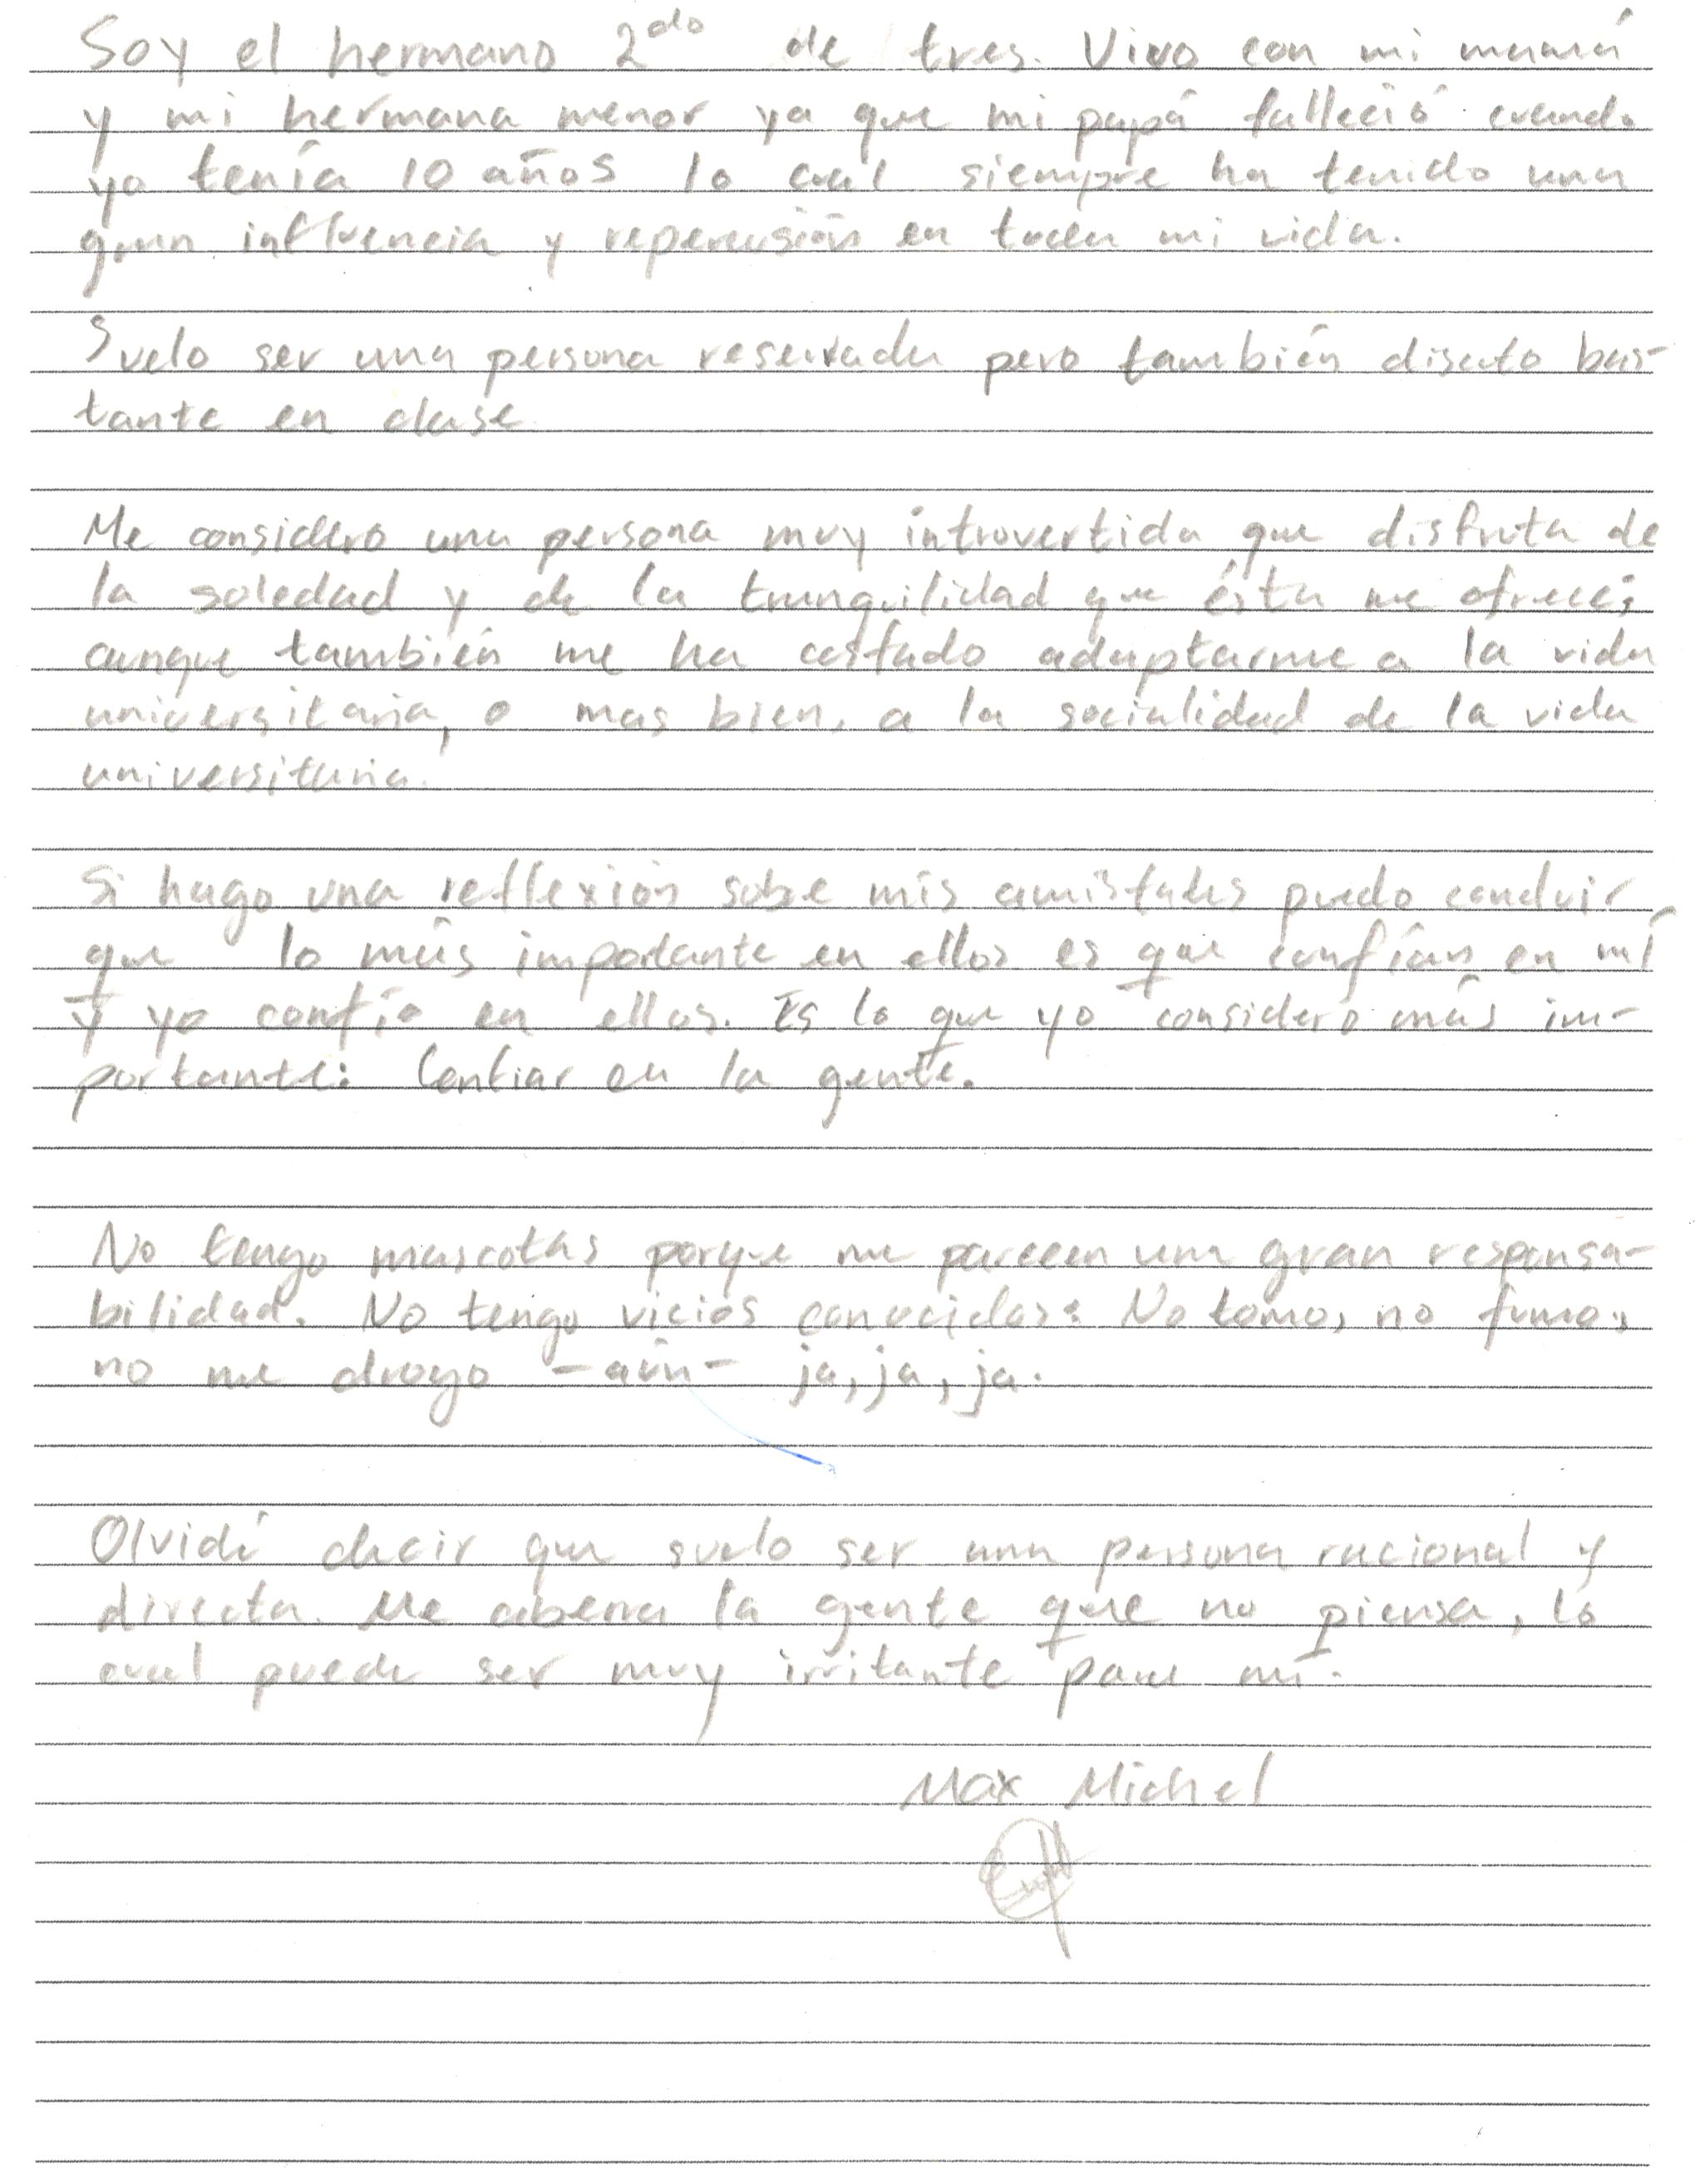 Soy el hermano 2do de tres. Vivo con mi mamá
y mi hermana menor ya que mi papá falleció cuando
yo tenía 10 años lo cual siempre ha tenido una
gran influencia y repercusión en toda mi vida.
Suelo ser una persona reservada pero también discuto bas-
tante en clase.
Me considero una persona muy introvertida que disfruta de
la soledad y de la tranquilidad que ésta me ofrece;
aunque también me ha costado adaptarme a la vida
universitaria, o mas bien, a la socialidad de la vida
universitaria.
Si hago una reflexión sobre mis amistades puedo concluir
que lo más importante en ellos es que confían en mí
y yo confío en ellos. Es lo que yo consideró más im-
portante: Confiar en la gente.
No tengo mascotas porque me parecen una gran responsa-
bilidad. No tengo vicios conocidos: No tomo, no fumo,
no me drogo -aún- ja, ja, ja.
Olvidé decir que suelo ser una persona racional y
directa. Me aberra la gente que no piensa, lo
cual puede ser muy irritante para mí.
Max Michel